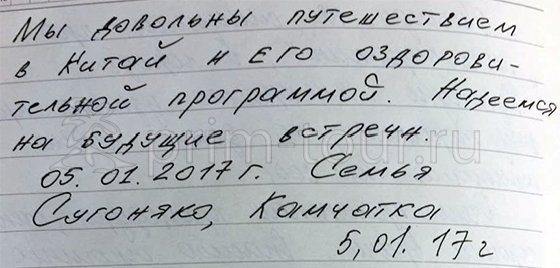 Мы довольны путешествием
в Китай и его оздорови-
тельной программой. Надеемся
на будущие встречи.
05.01.2017г. Семья
Сугоняко, Камчатка
5,01.17г
prim-tour.ru